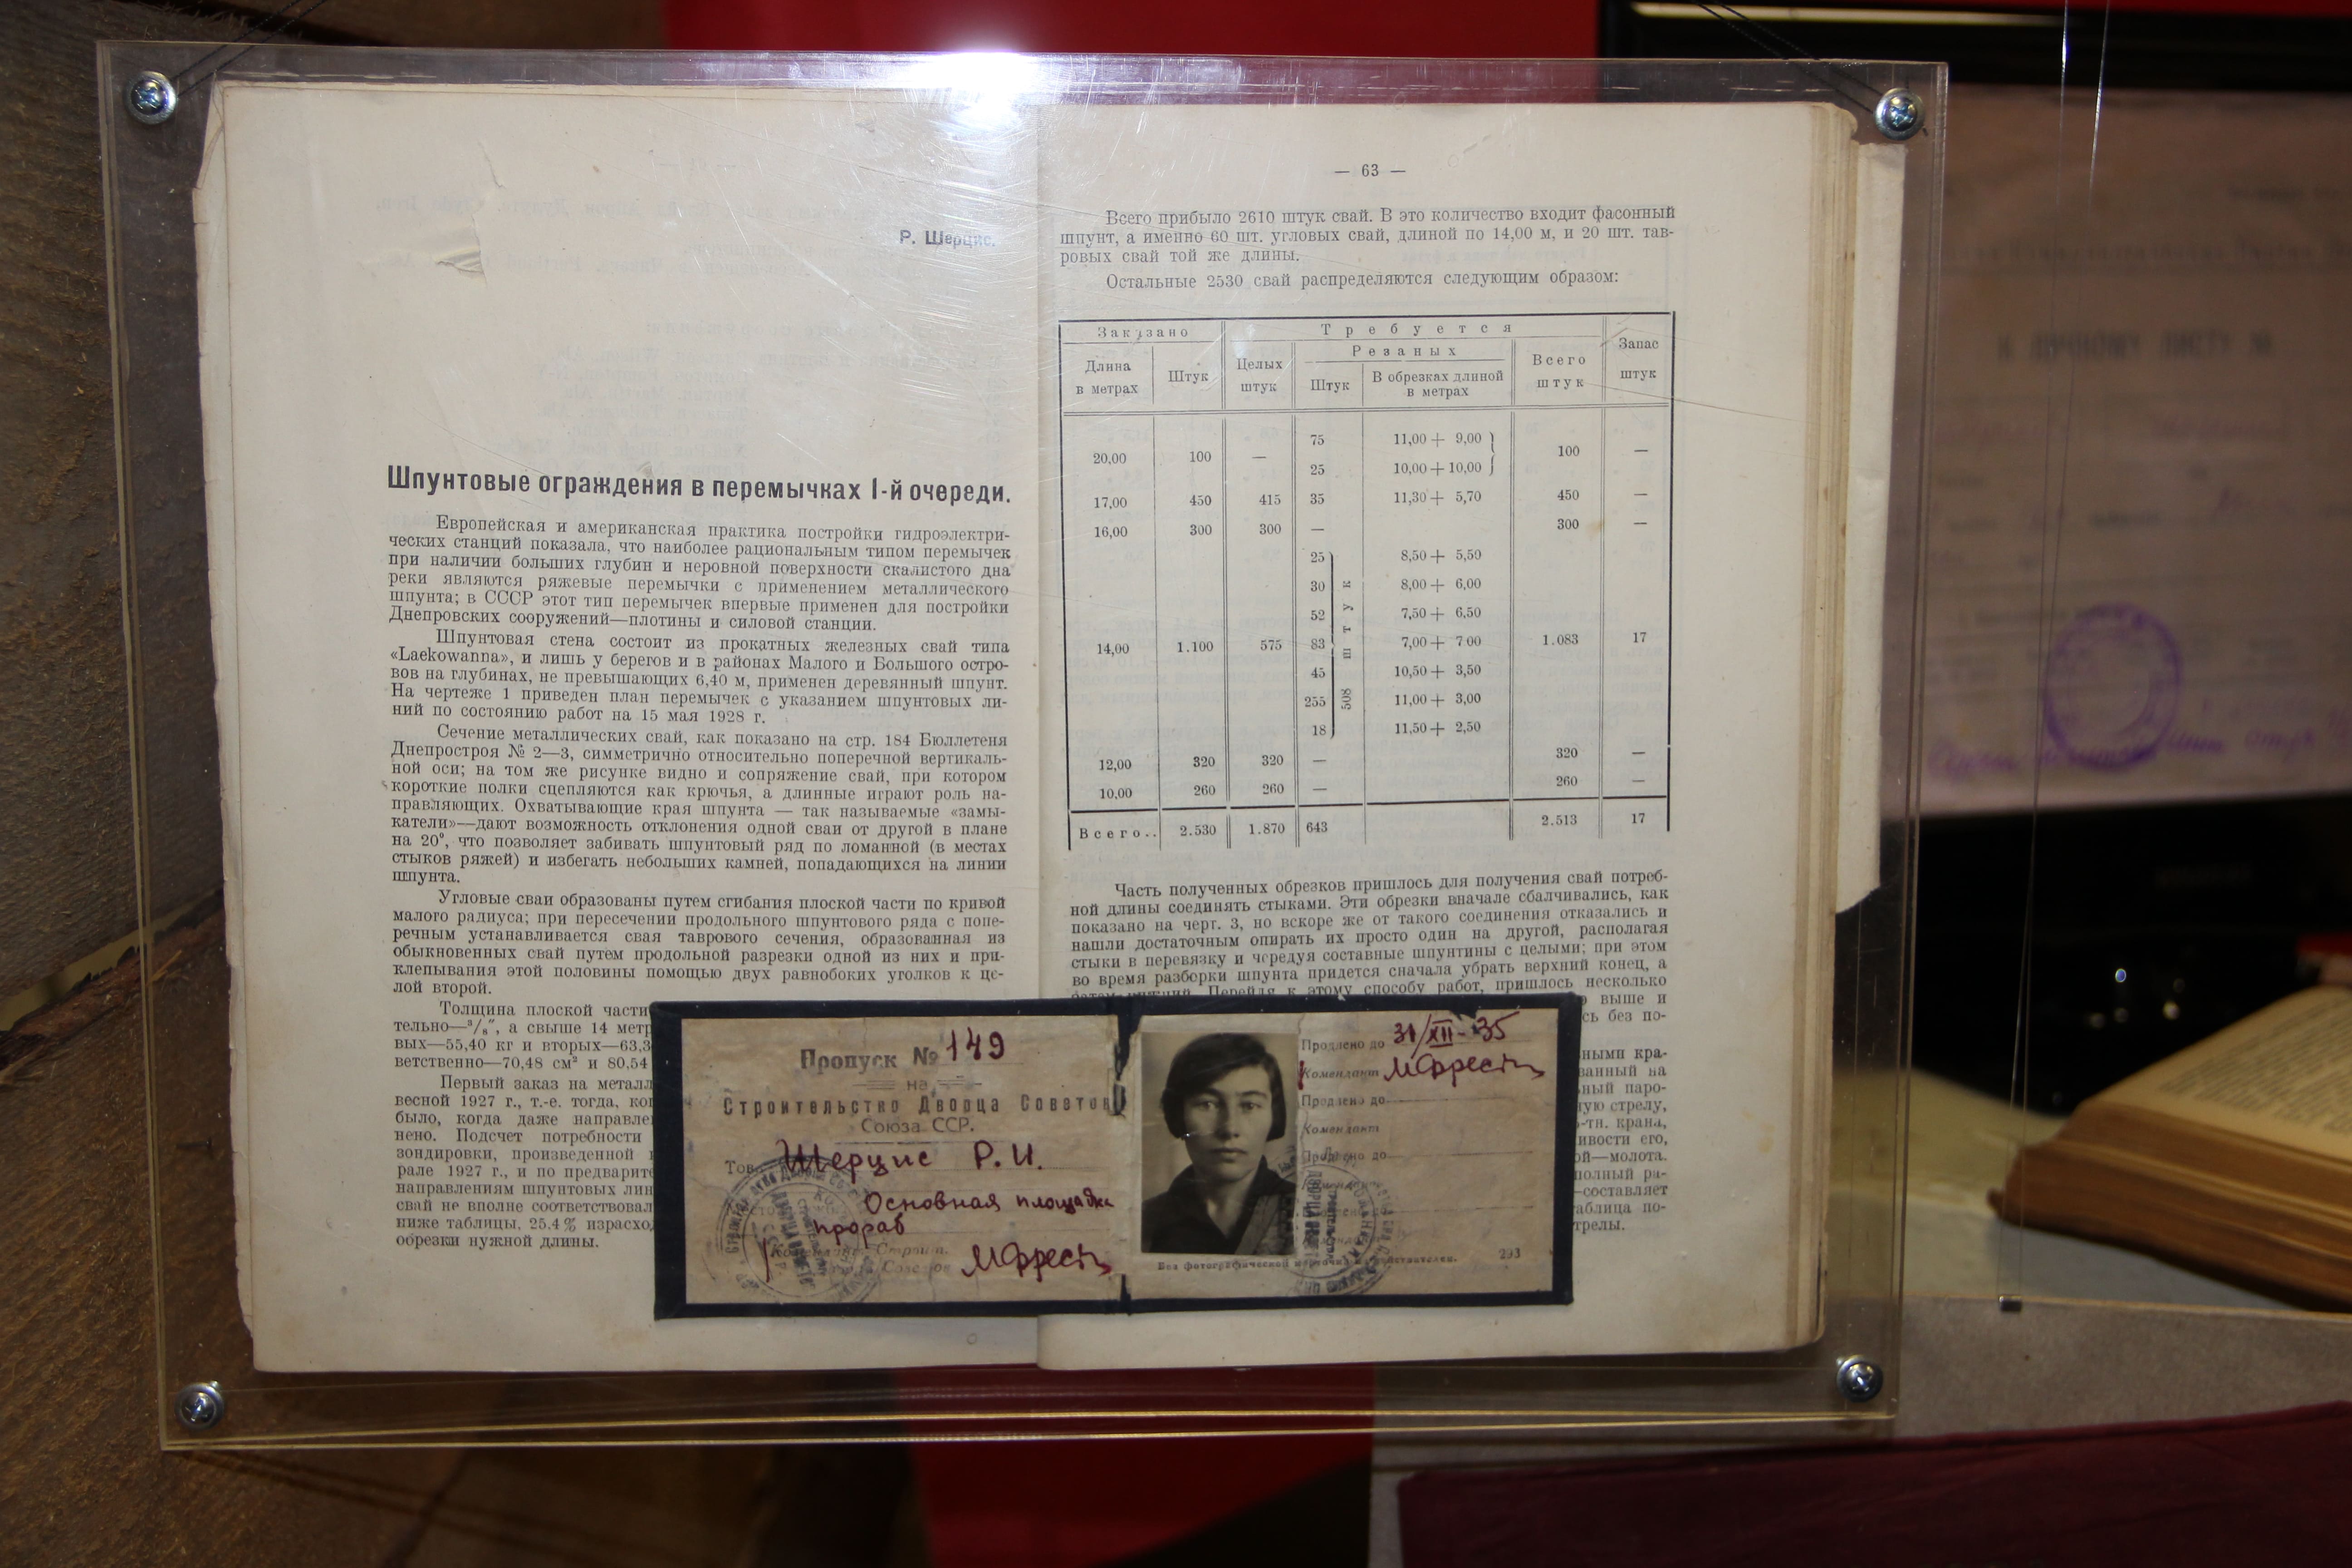 Р. Шерцис.
Шпунтовые ограждения в перемычках I-й очереди.
Европейская и американская практика постройки гидроэлектри-
ческих станций показала, что наиболее рациональным типом перемычек
при наличии больших глубин и неровной поверхности скалистого дна
реки являются ряжевые перемычки с применением металлического
шпунта; в СССР этот тип перемычек впервые применен для постройки
Днепровских сооружений—плотины и силовой станции.
Шпунтовая стена состоит из прокатных железных свай типа
«Laekowanna», и лишь у берегов и в районах Малого и Большого остро-
вов на глубинах, не превышающих 6,40 м, применен деревянный шпунт.
На чертеже 1 приведен план перемычек с указанием шпунтовых ли-
ний по состоянию работ на 15 мая 1928 г.
Сечение металлических свай, как показано на стр. 184 Бюллетеня
Днепростроя № 2—3, симметрично относительно поперечной вертикаль-
ной оси; на том же рисунке видно и сопряжение свай, при котором
короткие полки сцепляются как крючья, а длинные играют роль на-
правляющих. Охватывающие края шпунта — так называемые «замы-
катели»—дают возможность отклонения одной сваи от другой в плане
на 20°, что позволяет забивать шпунтовый ряд по ломанной (в местах
стыков ряжей) и избегать небольших камней, попадающихся на линии
шпунта.
Угловые сваи образованы путем сгибания плоской части по кривой
малого радиуса; при пересечении продольного шпунтового ряда с попе-
речным устанавливается свая таврового сечения, образованная из
обыкновенных свай путем продольной разрезки одной из них и при-
клепывания этой половины помощью двух равнобоких уголков к це-
лой второй.
Толщина плоской части
тельно—³/₈″, а свыше 14 метр
вых—55,40 кг и вторых—63,3
ветственно—70,48 см² и 80,54
Первый заказ на металл
весной 1927 г., т.-е. тогда, ког
было, когда даже направле
нено. Подсчет потребности
зондировки, произведенной
рале 1927 г., и по предварите
направлениям шпунтовых лин
свай не вполне соответствовал
ниже таблицы, 25.4% израсхо
обрезки нужной длины.
— 63 —
Всего прибыло 2610 штук свай. В это количество входит фасонный
шпунт, а именно 60 шт. угловых свай, длиной по 14,00 м, и 20 шт. тав-
ровых свай той же длины.
Остальные 2530 свай распределяются следующим образом:
Заказано Требуется Запас штук
Длина в метрах Штук Целых штук Резаных Всего штук
Штук В обрезках длиной в метрах
75 11,00 + 9,00
20,00 100 — 100 —
25 10,00 + 10,00
17,00 450 415 35 11,30 + 5,70 450 —
16,00 300 300 — 300 —
25 8,50 + 5,50
30 8,00 + 6,00
52 7,50 + 6,50
14,00 1.100 575 83 7,00 + 7 00 1.083 17
45 10,50 + 3,50
255 11,00 + 3,00
18 11,50 + 2,50
508 штук
12,00 320 320 — 320 —
10,00 260 260 — 260 —
Всего.. 2.530 1.870 643 2.513 17
Часть полученных обрезков пришлось для получения свай потреб-
ной длины соединять стыками. Эти обрезки вначале сбалчивались, как
показано на черт. 3, но вскоре же от такого соединения отказались и
нашли достаточным опирать их просто один на другой, располагая
стыки в перевязку и чередуя составные шпунтины с целыми; при этом
во время разборки шпунта придется сначала убрать верхний конец, а
затем нижний. Перейдя к этому способу работ, пришлось несколько
выше и
сь без по-
ными кра-
ванный на
ный паро-
ую стрелу,
-тн. крана,
ивости его,
ой—молота.
полный ра-
—составляет
таблица по-
трелы.
Пропуск № 149
на
Строительство Дворца Советов
Союза ССР.
Тов. Шерцис Р. И.
Основная площадка
прораб
Продлено до 31/XII-35
Комендант
Продлено до
Комендант
Продлено до
Без фотографической карточки недействителен.
293